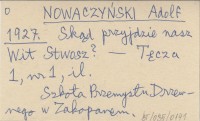 0 NOWACZYŃSKI Adolf
1927. Skąd przyjdzie nasz
Wit Stwosz? — Tęcza
1, nr 1, il.
Szkoła Przemysłu Drzew-
nego w Zakopanem.